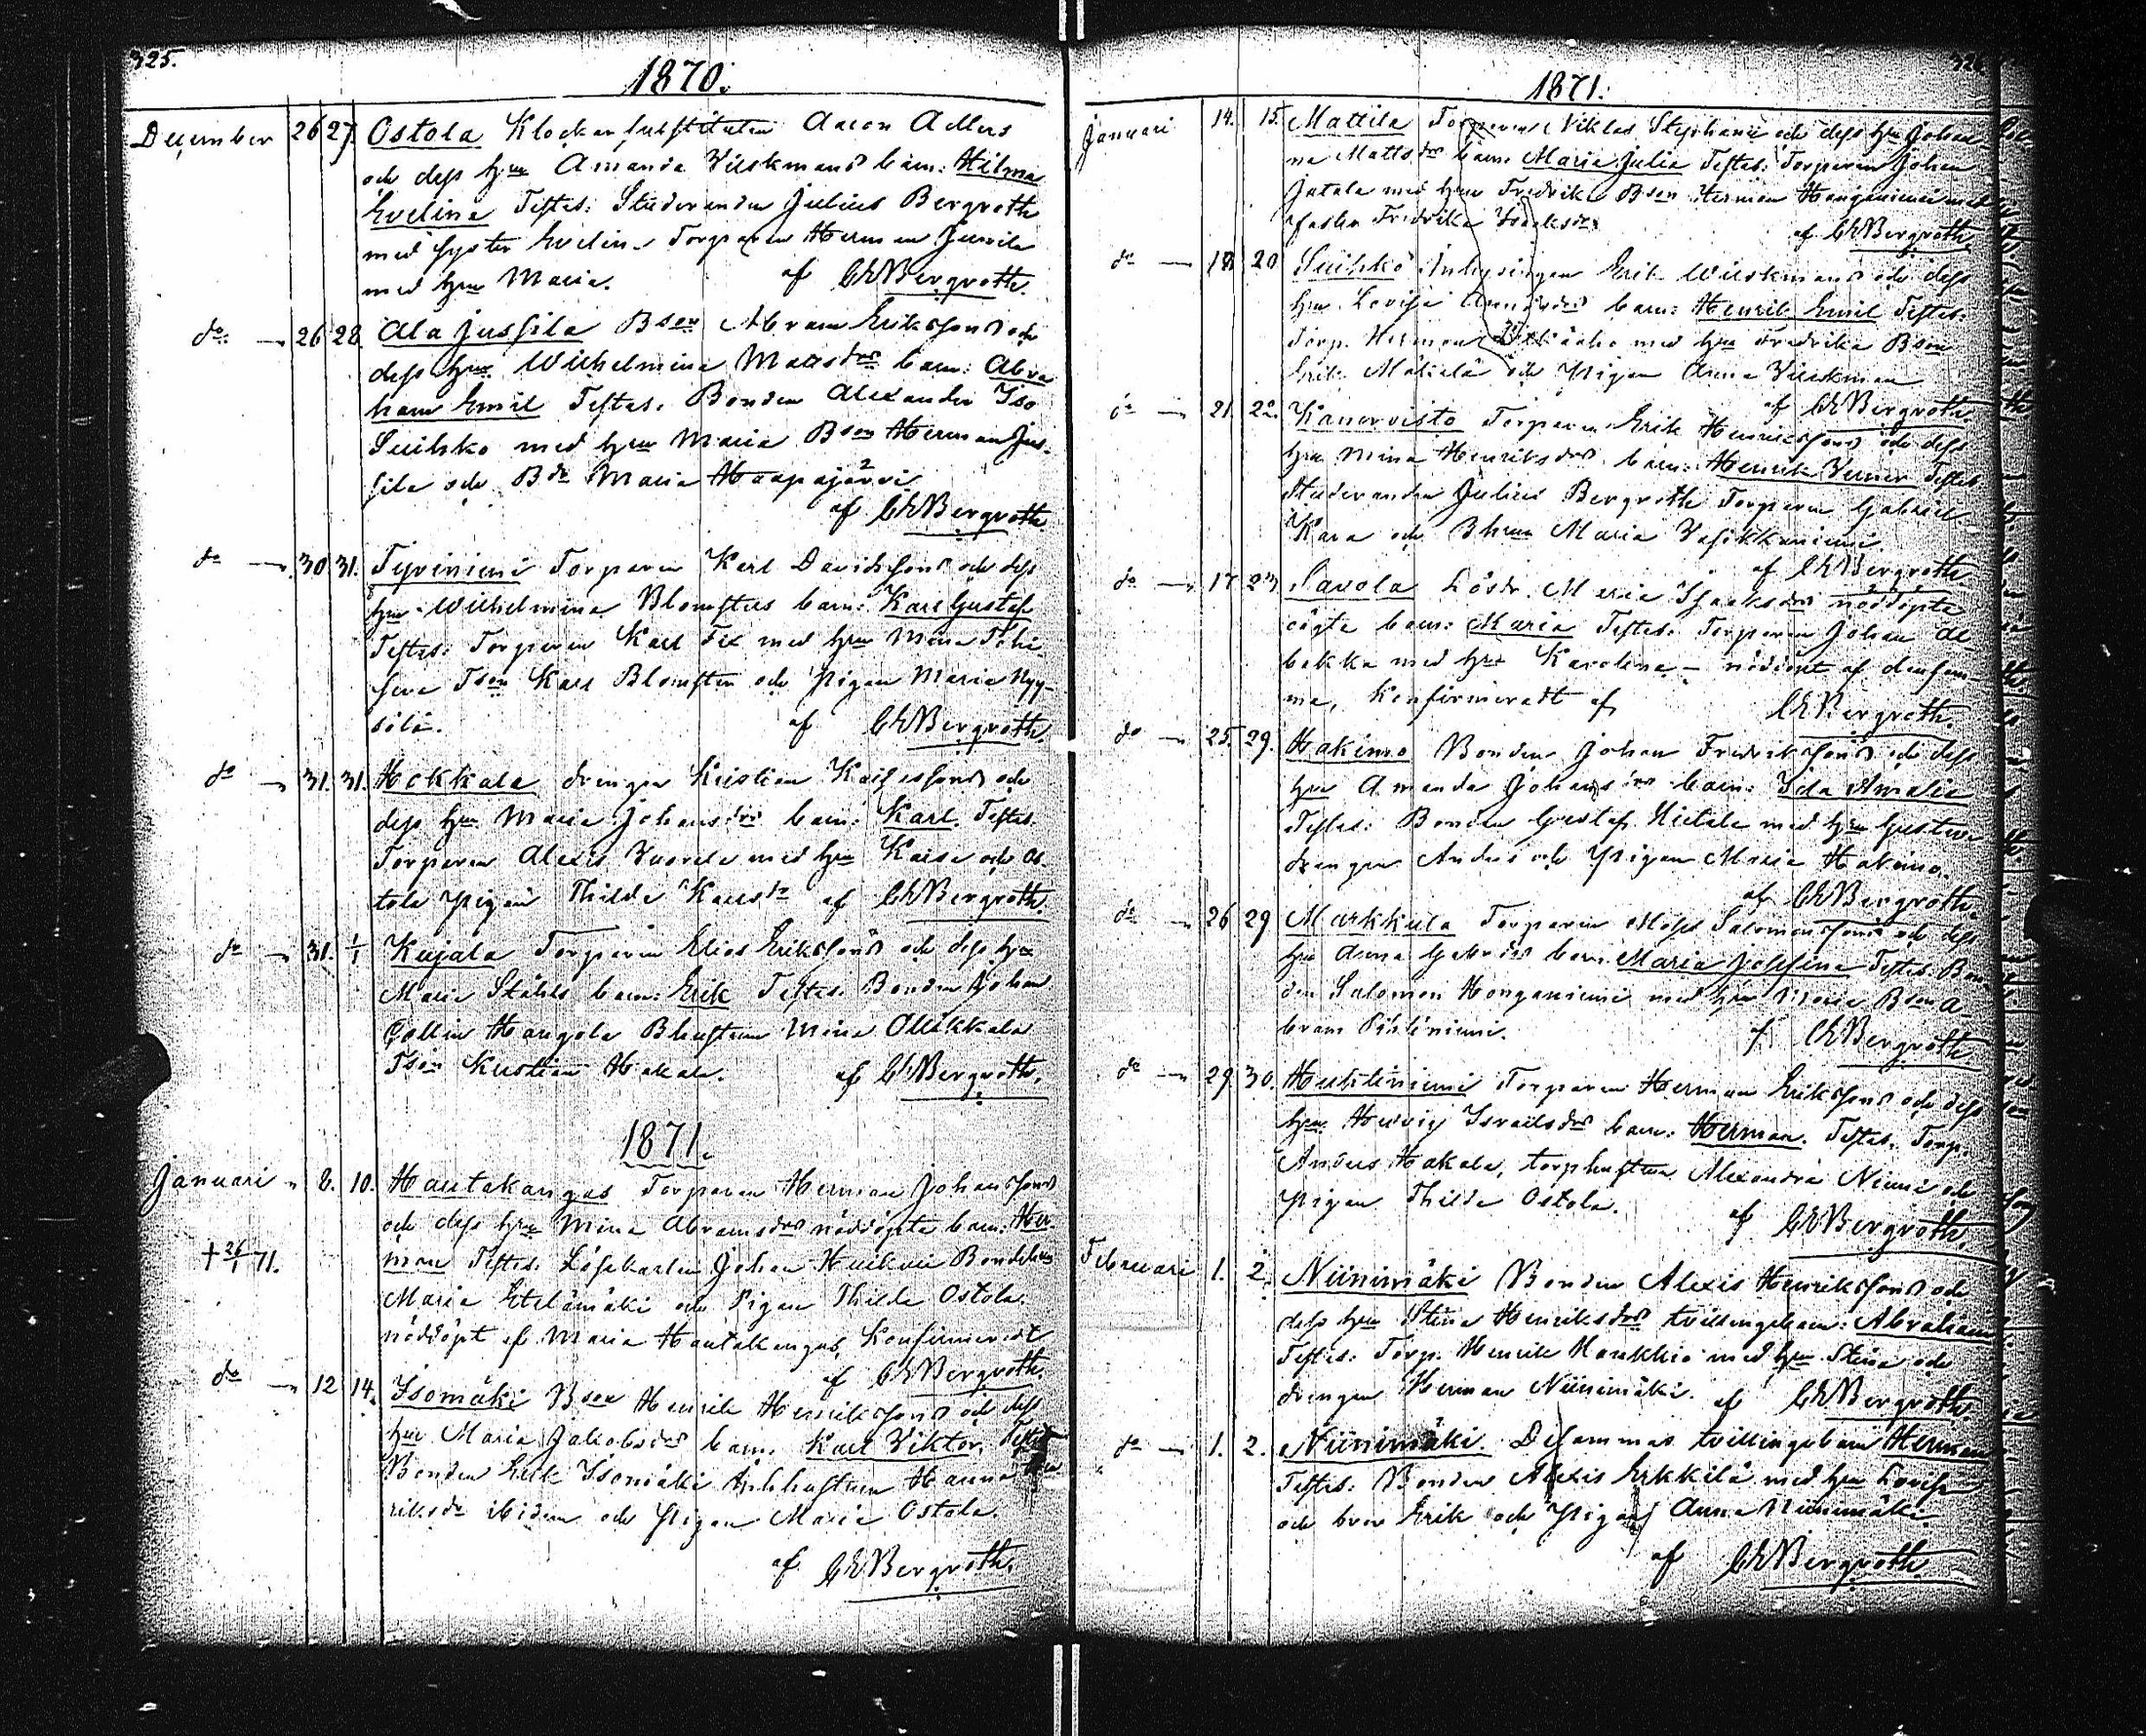 325.
1870.
December 26 27. Ostola Klockar substituten Aaron Adlers
och dess hru Amanda Vilskmans barn: Hilma
Evelina Testes: Studeranden Julius Bergroth
med syster Evelina Torparen Herman Junnila
med hru Maria. af CEBergroth.
do — 26 28. Ala Jussila Bson Abram Erikssons och
dess hru Wilhelmina Mattsdrs barn: Abra
ham Emil Testes. Bonden Alexander Iso
Suihko med hru Maria Bson Herman Jus-
sila och Bdr Maria Haapajärvi
af CEBergroth
do — 30 31. Tyriniemi Torparen Karl Davidssons och dess
hru Wilhelmina Blomsters barn: Karl Gustaf
Testes: Torparen Karl Fex med hru Mina
Tson Karl Blomster och Pigan Maria Nyy-
sölä. af CEBergroth.
do — 31. 31. Hokkala drengen Kristian Karlssons och
dess hru Maria Johansdrs barn: Karl. Testes.
Torparen Alexis Vuorela med hru Kaisa och Os-
tola pigan Thilda Karlsdr af CEBergroth.
do — 31. 1/1 Kujala Torparen Elias Erikssons och dess hru
Maria Ståhls barn: Erik Testes. Bonden Johan
Collin Hangola Bhustrun Mina Ollikkala
Tson Kristian Hakala. af CEBergroth.
1871.
Januari 8. 10. Hautakangas Torparen Herman Johanssons
och dess hru Mina Abramsdrs nöddöpta barn: Her-
† 26/1 71. man Testes. Löskarlen Johan Bondehru
Maria Etelämäki och Pigan Thilda Ostola.
nöddöpt af Maria Hautakangas, Konfirmeradt
af CEBergroth.
do — 12 14. Isomäki Bson Henrik Henrikssons och dess
hru Maria Jakobsdrs barn. Karl Viktor. Testes
Bonden Erik Isomäki Inhhustrun Hanna Hen
riksdr ibidem och Pigan Maria Ostola.
af CEBergroth.
326
1871.
Januari 14. 15. Mattila Torparen Niklas Stephans och dess hru Johan-
na Mattsdrs barn. Maria Julia Testes: Torparen Johan
Jatala med hru Fredrika Bson Herman Hanganiemi med
Fredrika Isaksdr
af CEBergroth
do — 18 20 Suihko Inhysingen Erik Wilskmans och dess
hru Lovisa barn: Henrik Emil Testes.
Torp. Herman med hru Fredrika Bson
Erik Mäkelä och Pigan Anna Vilskman
af CEBergroth
do — 21. 22. Kanervisto Torparen Erik Henrikssons och dess
hru Mina Henriksdrs barn: Henrik Verner Testes
Studeranden Julius Bergroth Torparen Gabriel
Kara och Bhrun Maria Vasikkaniemi.
af CEBergroth
do — 17 23 Savola Lösdr. Maria Isaksdrs nöddöpta
oägta barn: Maria Testes. Torparen Johan Al
bakka med hru Karolina — nöddöpt af densam-
ma, Konfirmeradt af CEBergroth.
do — 25. 29. Hakimo Bonden Johan Fredrikssons och dess
hru Amanda Johansdrs barn: Ida Amalia
Testes: Bonden Gustaf Hietala med hru Gustava
drengen Anders och Pigan Maria Hakimo.
af CEBergroth.
do — 26 29 Markkula Torparen Moses Salomonssons och dess
hru Anna Gabrsdrs barn. Maria Josefina Testes. Bon
den Salomon Honganiemi med hru Maria Bson A-
bram Pihliniemi. af CEBergroth
do — 29. 30. Huhtiniemi Torparen Herman Erikssons och dess
hru Hedvig Israelsdrs barn: Herman. Testes. Torp.
Anders Hakala, torphustrun Alexandra Niemi och
Pigan Thilda Ostola. af CEBergroth.
Februari 1. 2. Niinimäki Bonden Alexis Henrikssons och
dess hru Stina Henriksdrs tvillingebarn: Abraham
Testes: Torp. Henrik med hru Stina och
drengen Herman Niinimäki. af CEBergroth.
do — 1. 2. Niinimäki. Desammas tvillingebarn Herman
Testes. Bonden Alexis Erkkilä med hru Lovisa
och bror Erik och Pigan Anna Niinimäki.
af CEBergroth